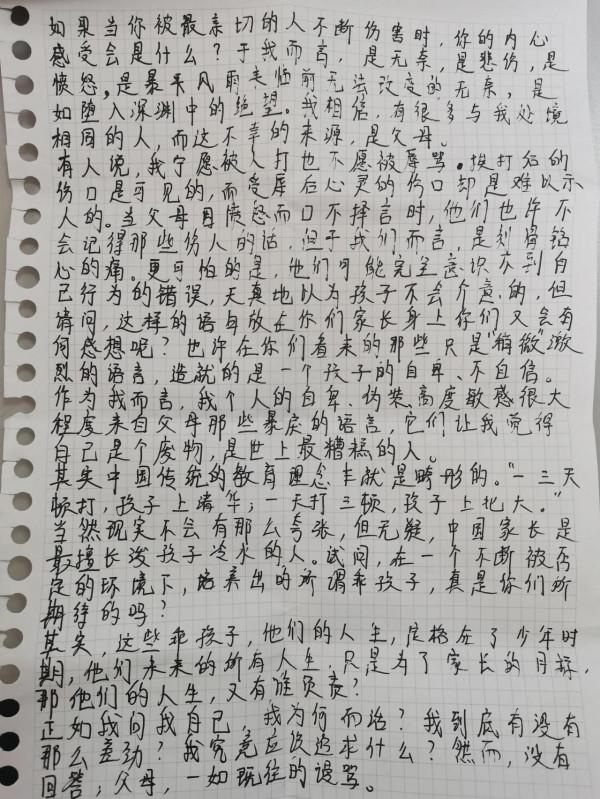 如果当你被最亲切的人不断伤害时，你的内心
感受会是什么？于我而言，是无奈，是悲伤，是
愤怒，是暴风雨来临前无法改变的无奈，是
如堕入深渊中的绝望。我相信，有很多与我处境
相同的人，而这不幸的来源，是父母。
有人说，我宁愿被人打也不愿被辱骂。挨打后的
伤口是可见的，而受辱后心灵的伤口却是难以示
人的。当父母因愤怒而口不择言时，他们也许不
会记得那些伤人的话，但于我们而言，是刻骨铭
心的痛。更可怕的是，他们可能完全意识不到自
己行为的错误，天真地以为孩子不会介意的，但
请问，这样的语句放在你们家长身上你们又会有
何感想呢？也许在你们看来的那些只是“稍微”激
烈的语言，造就的是一个孩子的自卑、不自信。
作为我而言，我个人的自卑、伪装、高度敏感很大
程度来自父母那些暴戾的语言，它们让我觉得
自己是个废物，是世上最糟糕的人。
其实中国传统的教育理念就是畸形的。“一三天
顿打，孩子上清华；一天打三顿，孩子上北大。”
当然现实不会有那么夸张，但无疑，中国家长是
最擅长泼孩子冷水的人。试问，在一个不断被否
定的环境下，培养出的所谓乖孩子，真是你们所
期待的吗？
其实，这些乖孩子，他们的人生，定格在了少年时
期，他们未来的所有人生，只是为了家长的目标，
那他们的人生，又有谁负责？
正如我问我自己，我为何而活？我到底有没有
那么差劲？我究竟应该追求什么？然而，没有
回答，父母，一如既往的谩骂。